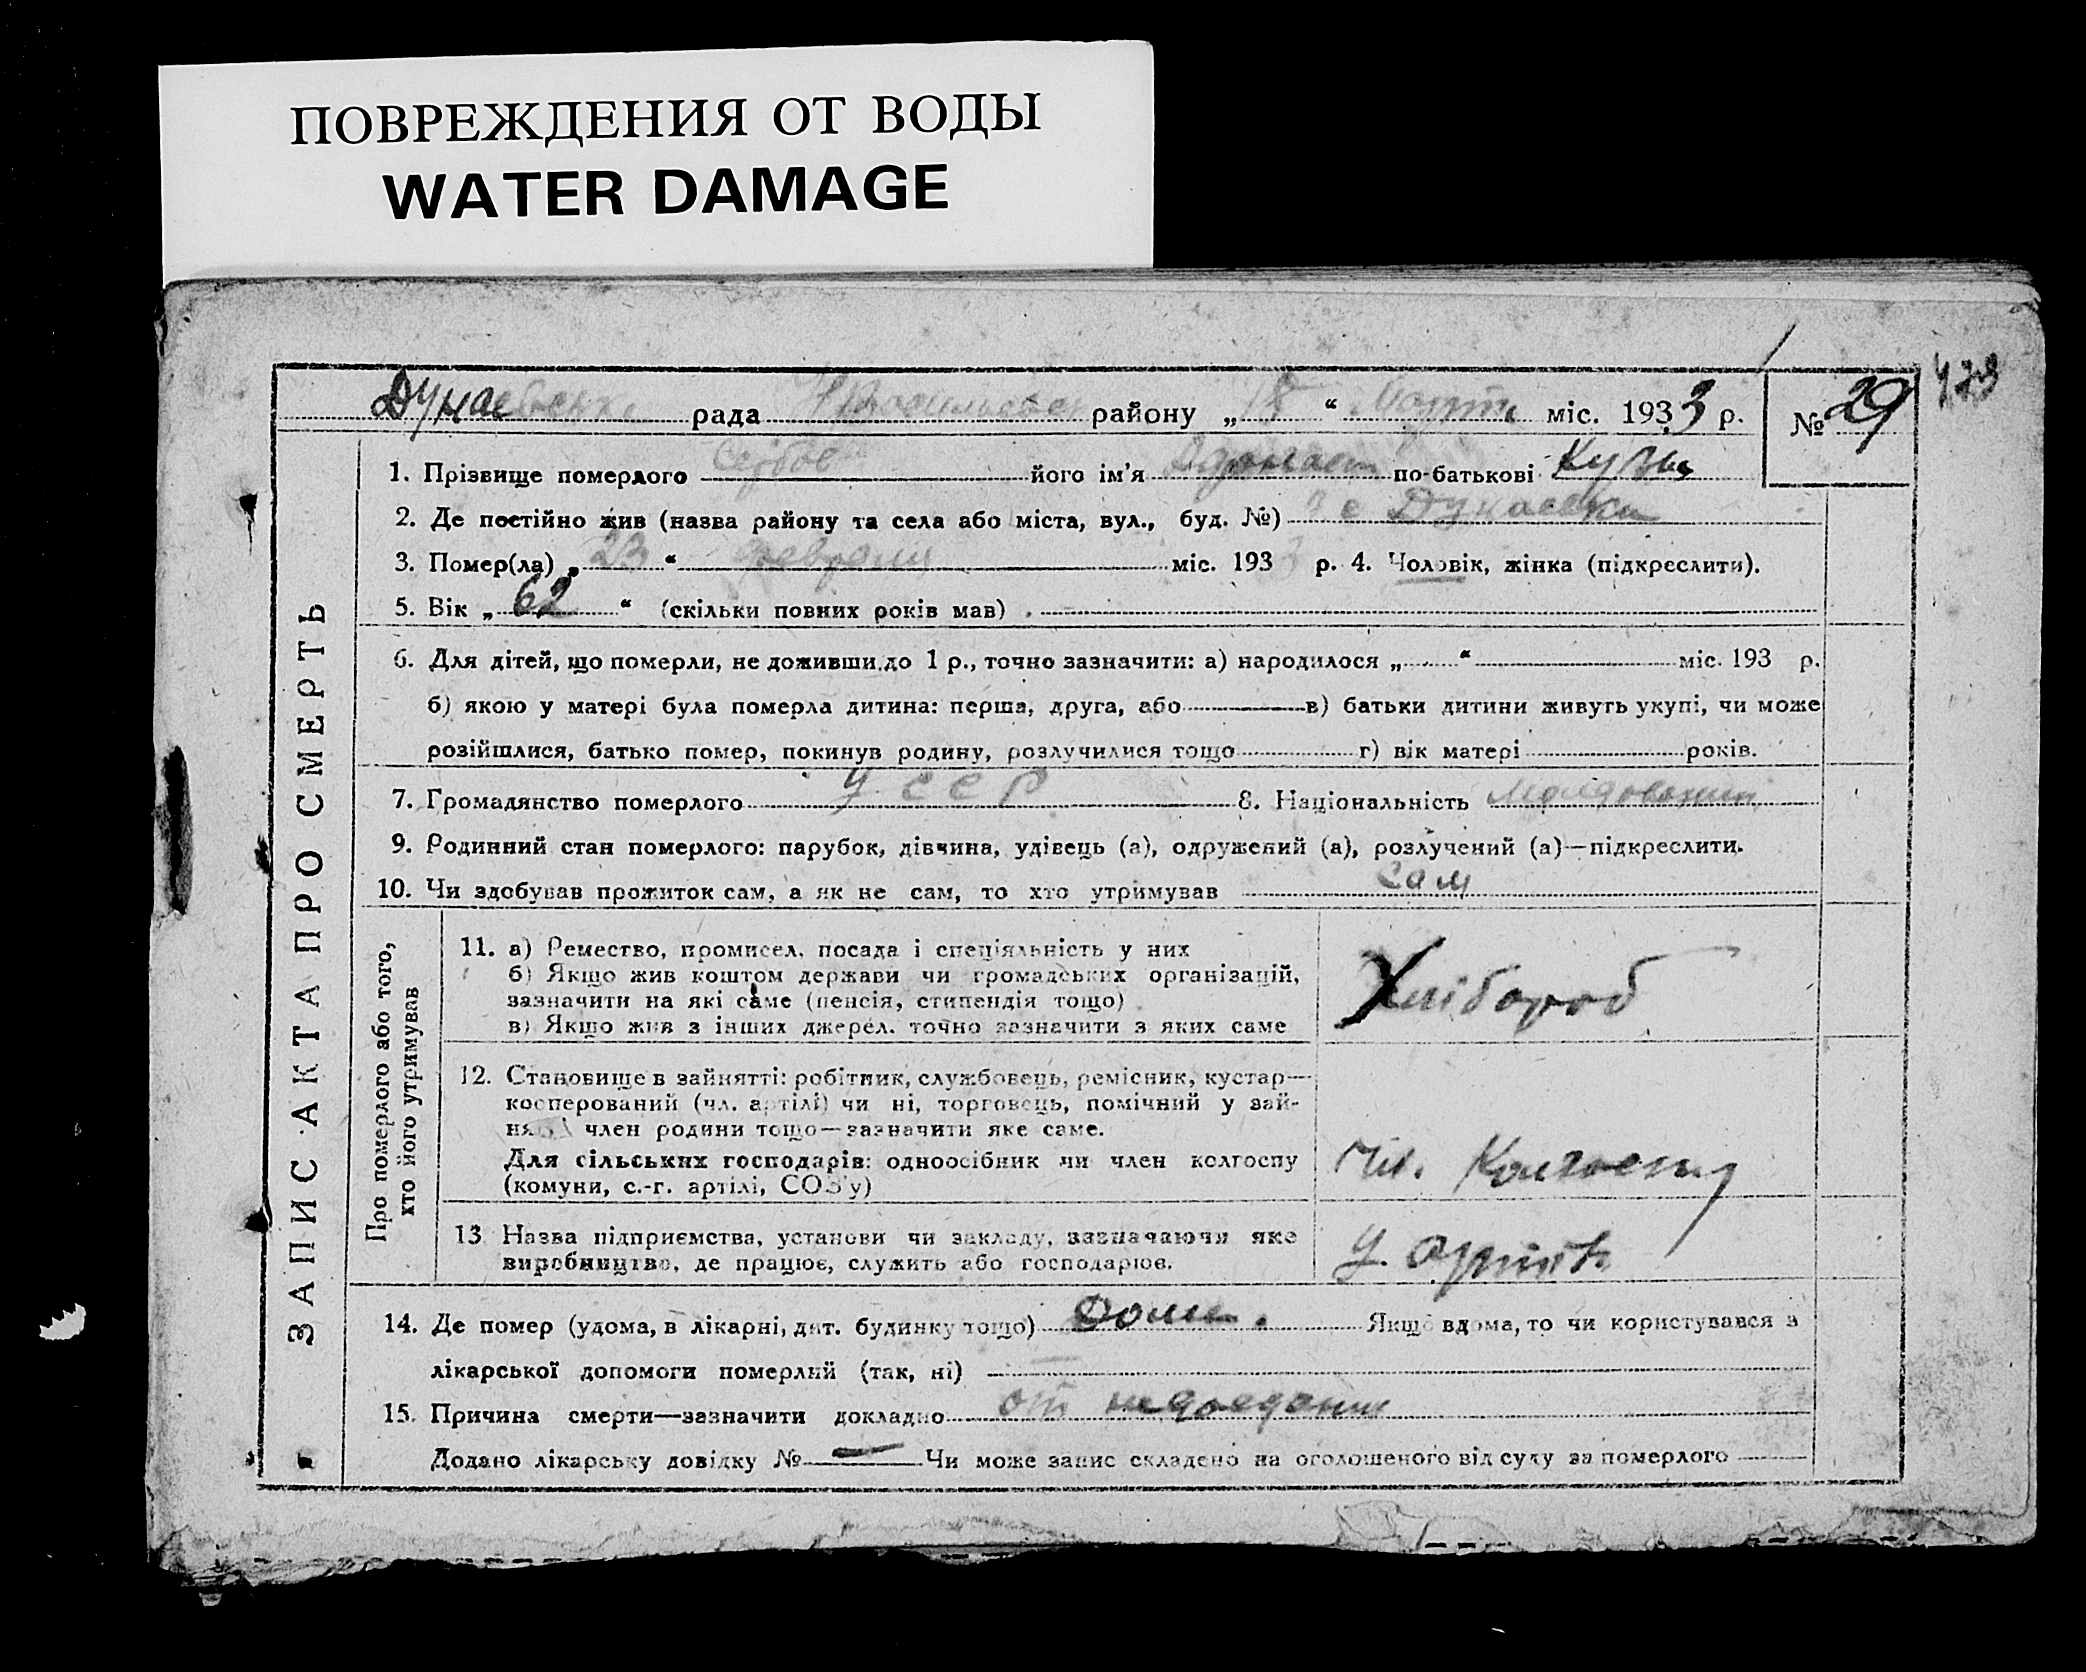 ПОВРЕЖДЕНИЯ ОТ ВОДЫ
WATER DAMAGE
423
Дунаевська рада району „18“ Марта міс. 1933 р. № 29
1. Прізвище померлого його ім'я по-батькові Кузьм
2. Де постійно жив (назва району та села або міста, вул., буд. №) с Дунаевки
3. Помер(ла) „23“ февраля міс. 1933 р. 4. Чоловік, жінка (підкреслити).
5. Вік „62“ (скільки повних років мав)
6. Для дітей, що померли, не доживши до 1 р., точно зазначити: а) народилося „ “ міс. 193 р.
б) якою у матері була померла дитина: перша, друга, або в) батьки дитини живуть укупі, чи може
розійшлися, батько помер, покинув родину, розлучилися тощо г) вік матері років.
7. Громадянство померлого УССР 8. Національність молдованин
9. Родинний стан померлого: парубок, дівчина, удівець (а), одружений (а), розлучений (а)—підкреслити.
10. Чи здобував прожиток сам, а як не сам, то хто утримував сам
ЗАПИС АКТА ПРО СМЕРТЬ
Про померлого або того,
хто його утримував
11. а) Ремество, промисел, посада і спеціяльність у них
б) Якщо жив коштом держави чи громадських організацій,
зазначити на які саме (пенсія, стипендія тощо)
в) Якщо жив з інших джерел, точно зазначити з яких саме
Хлібороб
12. Становище в зайнятті: робітник, службовець, ремісник, кустар—
кооперований (чл. артілі) чи ні, торговець, помічний у зай-
нятті член родини тощо—зазначити яке саме.
Для сільських господарів: одноосібник чи член колгоспу
(комуни, с.-г. артілі, СОЗ'у)
Чл. Колгоспу
13. Назва підприємства, установи чи закладу, зазначаючи яке
виробництво, де працює, служить або господарює.
У артілі
14. Де помер (удома, в лікарні, дит. будинку тощо) Дома. Якщо вдома, то чи користувався з
лікарської допомоги померлий (так, ні)
15. Причина смерти—зазначити докладно от недоедания
Додано лікарську довідку № — Чи може запис складено на оголошеного від суду за померлого